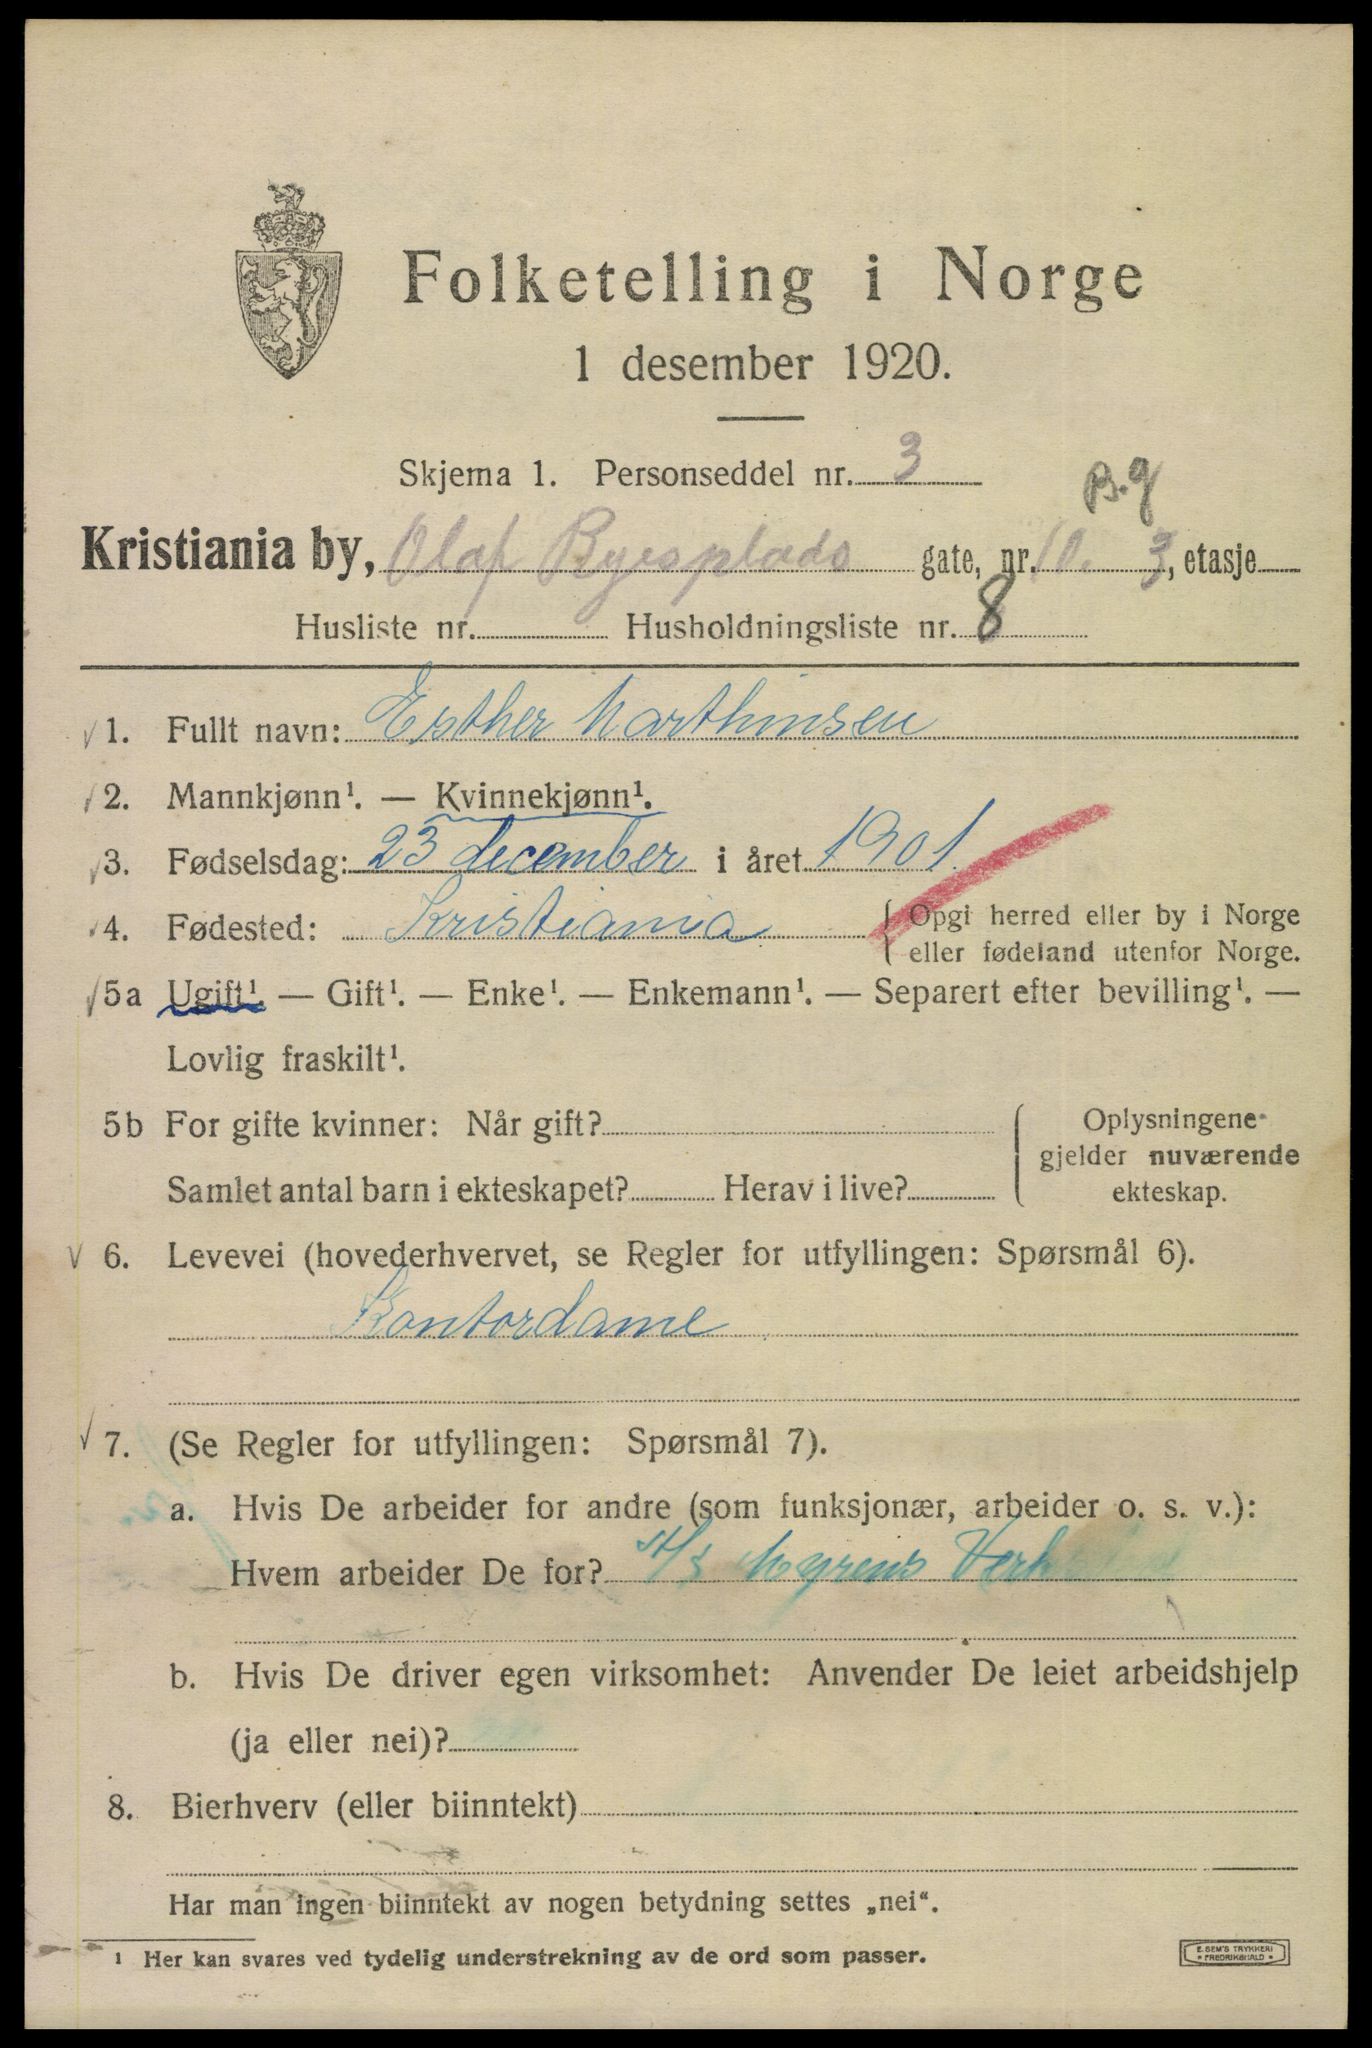 Folketelling i Norge
1 desember 1920.
Skjema 1. Personseddel nr. 3
B.g
Kristiania by, Olaf Ryesplads gate, nr. 10. 3, etasje
Husliste nr. Husholdningsliste nr. 8
1. Fullt navn: Esther Marthinsen
2. Mannkjønn¹. — Kvinnekjønn¹.
3. Fødselsdag: 23 december i året 1901.
4. Fødested: Kristiania { Opgi herred eller by i Norge
eller fødeland utenfor Norge.
5a Ugift¹ — Gift¹. — Enke¹. — Enkemann¹. — Separert efter bevilling¹. —
Lovlig fraskilt¹.
5b For gifte kvinner: Når gift? { Oplysningene
gjelder nuværende
Samlet antal barn i ekteskapet? Herav i live? ekteskap.
6. Levevei (hovederhvervet, se Regler for utfyllingen: Spørsmål 6).
Kontordame
7. (Se Regler for utfyllingen: Spørsmål 7).
a. Hvis De arbeider for andre (som funksjonær, arbeider o. s. v.):
Hvem arbeider De for? A/S Myrens Verk
b. Hvis De driver egen virksomhet: Anvender De leiet arbeidshjelp
(ja eller nei)?
8. Bierhverv (eller biinntekt)
Har man ingen biinntekt av nogen betydning settes „nei“.
¹ Her kan svares ved tydelig understrekning av de ord som passer.
E. SEM'S TRYKKERI
• FREDRIKSHALD •